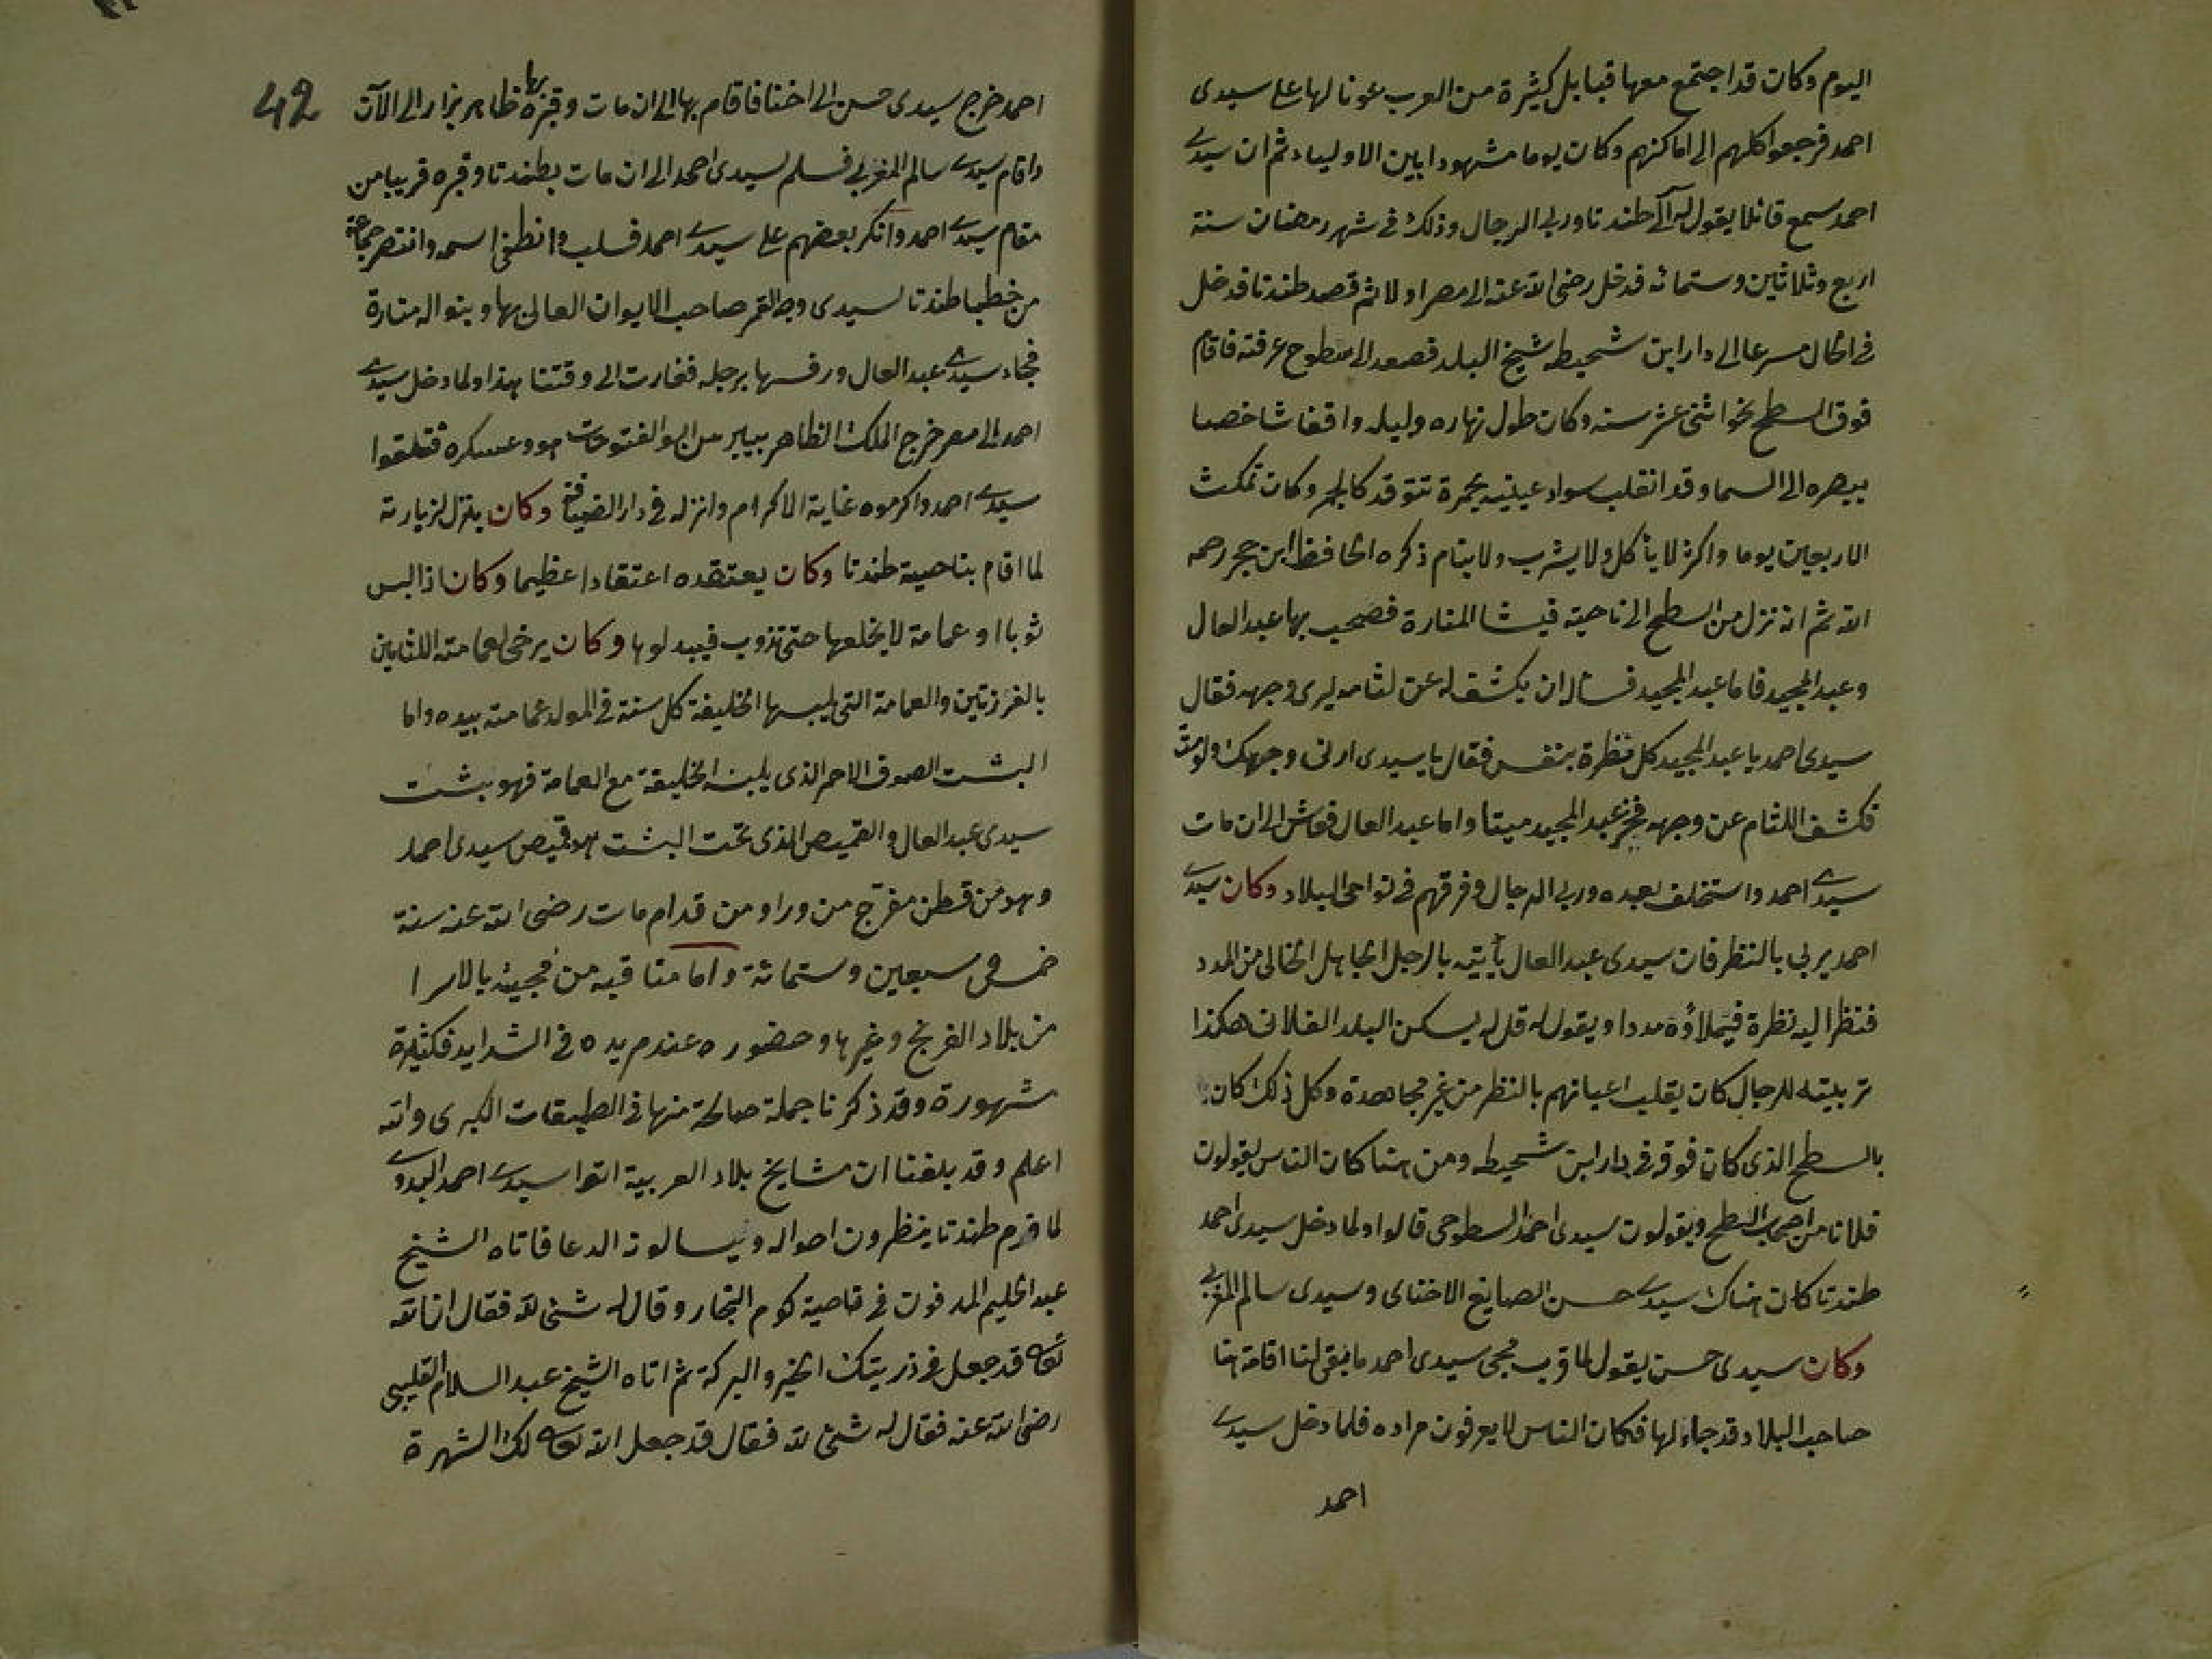 اليوم وكان قد اجتمع معها قبايل كثيرة من العرب عونا لها على سيدى
احمد فرجعوا كلهم الى اماكنهم وكان يوما مشهودا بين الاولياء ثم ان سيدى
احمد سمع قائلا يقول له الى طندتا وربى الرجال وذلك فى شهر رمضان سنة
اربع وثلاثين وستمائه فدخل رضى الله عنه الى مصر اولا ثم قصد طندتا فدخل
فى الحال مسرعا الى دار ابن شحيطه شيخ البلد فصعد الى سطوح غرفته فاقام
فوق السطح نحو اثنى عشر سنه وكان طول نهاره وليله واقفا شاخصا
ببصره الى السما وقد انقلب سواد عينيه بحمرة تتوقد كالجمر وكان تمكث
الاربعين يوما واكثر لا يأكل ولا يشرب ولا ينام ذكره الحافظ ابن حجر رحمه
الله ثم انه نزل من السطح الى ناحية فيشا المنارة فصحب بها عبد العال
وعبد المجيد فاما عبد المجيد فساله ان يكشف له عن لثامه ليرى وجهه فقال
سيدى احمد يا عبد المجيد كل نظرة بنفس فقال يا سيدى ارنى وجهك ولو مت
فكشف اللثام عن وجهه فخر عبد المجيد ميتا واما عبد العال فعاش الى ان مات
سيدى احمد واستخلف بعده وربى الرجال وفرقهم فى نواحى البلاد وكان سيدى
احمد يربى بالنظر فان سيدى عبد العال يأتيه بالرجل الجاهل الخالى من المدد
فنظر اليه نظرة فيملاؤه مددا ويقول له قل له يسكن البلد الفلانى هكذا
تربيته للرجال كان يقلب اعيانهم بالنظر من غير مجاهدة وكل ذلك كان
بالسطح الذى كان فوقه فى دار ابن شحيطه ومن هنا كان الناس يقولون
فلانا من اصحاب السطح ويقولون سيدى احمد السطوحى قالوا ولما دخل سيدى احمد
طندتا كان هناك سيدى حسن الصايغ الاخناى وسيدى سالم المغربى
وكان سيدى حسن يقول لما قرب مجى سيدى احمد ما بقى لنا اقامة هنا
صاحب البلاد قد جاء لها فكان الناس لا يعرفون مراده فلما دخل سيدى
احمد
42
احمد خرج سيدى حسن الى اخنا فاقام بها الى ان مات وقبره بها ظاهر يزار الى الآن
واقام سيدى سالم المغربى فسلم لسيدى احمد الى ان مات بطندتا وقبره قريبا من
مقام سيدى احمد وانكر بعضهم على سيدى احمد فسلب وانطفى اسمه وانتصر جماعة
من خطبا طندتا لسيدى وجه القمر صاحب الايوان العالى بها وبنوا له منارة
فجاء سيدى عبد العال ورفسها برجله فغارت الى وقتنا هذا ولما دخل سيدى
احمد الى مصر خرج الملك الظاهر بيبرس ابو الفتوحات هو وعسكره فتلقوا
سيدى احمد واكرموه غاية الاكرام وانزله فى دار الضيافة وكان ينزل لزيارته
لما اقام بناحية طندتا وكان يعتقده اعتقادا عظيما وكان اذا لبس
ثوبا او عمامة لا يخلعها حتى تذوب فيبدلوها وكان يرخى لعمامته اللثامين
بالغرزتين والعمامة التى يلبسها الخليفة كل سنة فى المولد عمامته بيده واما
البشت الصوف الاحمر الذى يلبسه الخليفة مع العمامة فهو بشت
سيدى عبد العال والقميص الذى تحت البشت هو قميص سيدى احمد
وهو من قطن مفرج من ورا ومن قدام مات رضى الله عنه سنة
خمس وسبعين وستمائة واما مناقبه من مجيئه بالاسرا
من بلاد الفرنج وغيرها وحضوره عند مريده فى الشدايد فكثيرة
مشهورة وقد ذكرنا جملة صالحة منها فى الطبقات الكبرى والله
اعلم وقد بلغنا ان مشايخ بلاد الغربية اتوا سيدى احمد البدوى
لما قدم طندتا ينظرون احواله ويسالونه الدعا فاتاه الشيخ
عبد الحليم المدفون فى ناحية كوم النجار وقال له شئ لله فقال ان الله
تعالى قد جعل فى ذريتك الخير والبركة ثم اتاه الشيخ عبد السلام القليبى
رضى الله عنه فقال له شئ لله فقال قد جعل الله تعالى لك الشهرة